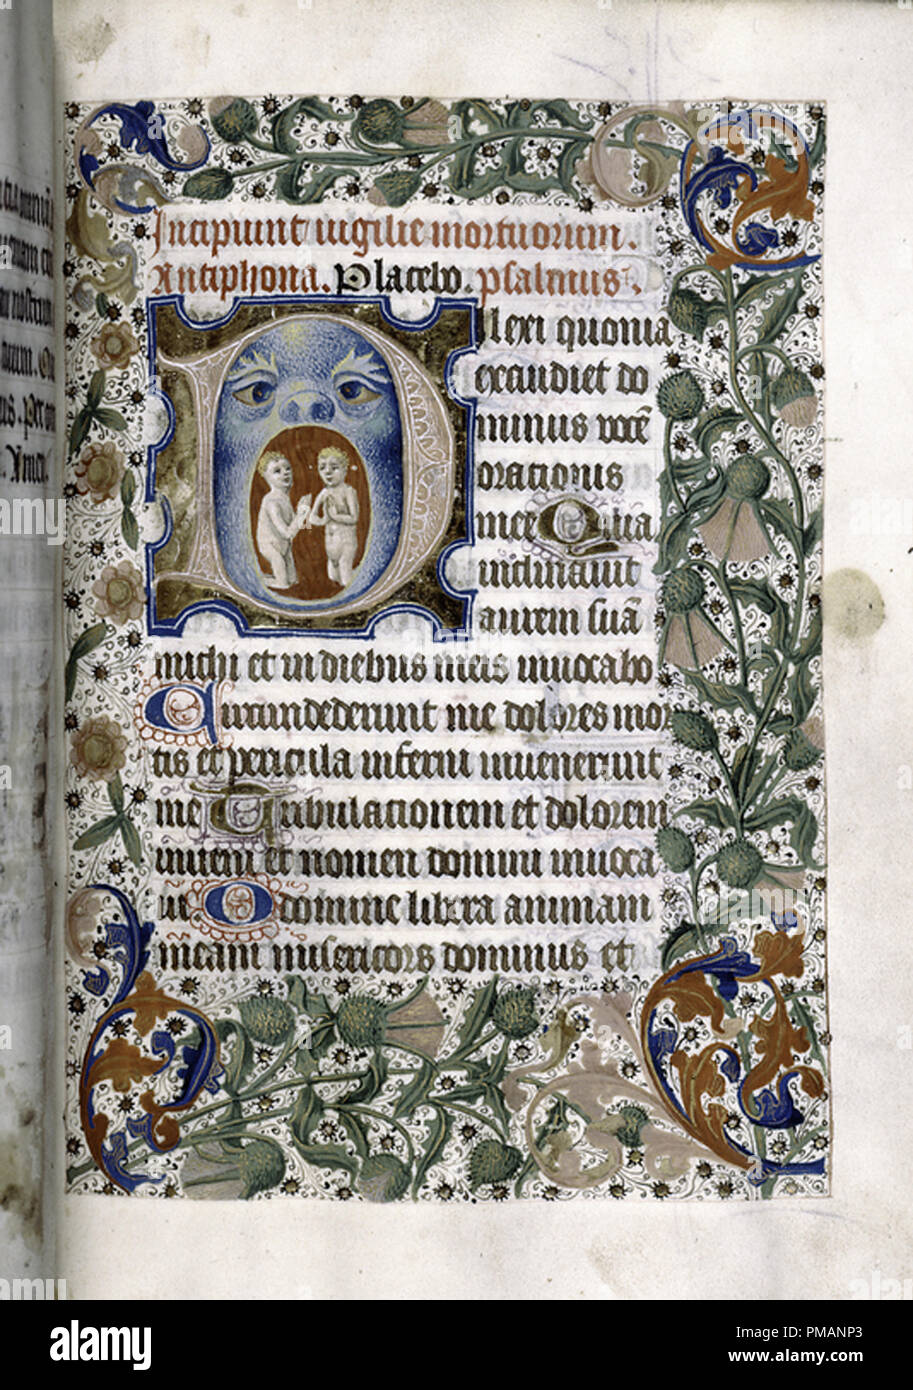 Incipiunt vigilie mortuorum.
Antiphona. Placebo. psalmus.
Dilexi quonia
exaudiet do
minus vocē
orationis
mee Quia
inclinavit
aurem suā
michi et in diebus meis invocabo
Circundederunt me dolores mor
tis et pericula inferni invenerunt
me Tribulationem et dolorem
inveni et nomen domini invoca
vi. O domine libera animam
meam misericors dominus et
alamy
Image ID: PMANP3
www.alamy.com